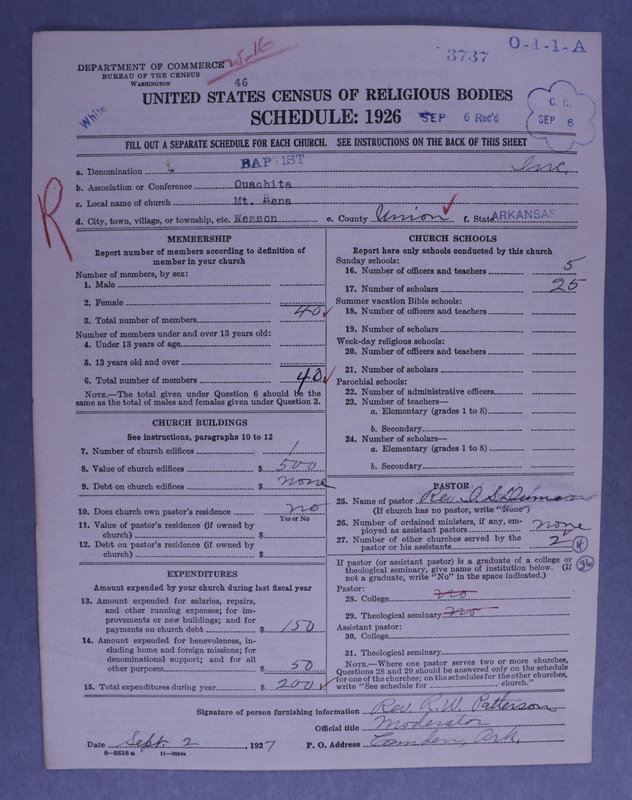 DEPARTMENT OF COMMERCE
BUREAU OF THE CENSUS
WASHINGTON
3737
O-1-1-A
46
White
UNITED STATES CENSUS OF RELIGIOUS BODIES
SCHEDULE: 1926
SEP 6 Rec'd
C. C.
SEP 6
FILL OUT A SEPARATE SCHEDULE FOR EACH CHURCH. SEE INSTRUCTIONS ON THE BACK OF THIS SHEET
R
a. Denomination BAPTIST Inc.
b. Association or Conference Ouachita
c. Local name of church Mt. Rena
d. City, town, village, or township, etc. Wesson e. County Union f. State ARKANSAS
MEMBERSHIP
Report number of members according to definition of
member in your church
Number of members, by sex:
1. Male
2. Female
3. Total number of members 40
Number of members under and over 13 years old:
4. Under 13 years of age
5. 13 years old and over
6. Total number of members 40
NOTE.—The total given under Question 6 should be the
same as the total of males and females given under Question 3.
CHURCH BUILDINGS
See instructions, paragraphs 10 to 12
7. Number of church edifices 1
8. Value of church edifices $ 500
9. Debt on church edifices $ none
10. Does church own pastor's residence? no
Yes or No
11. Value of pastor's residence (if owned by
church) $
12. Debt on pastor's residence (if owned by
church) $
EXPENDITURES
Amount expended by your church during last fiscal year
13. Amount expended for salaries, repairs,
and other running expenses; for im-
provements or new buildings; and for
payments on church debt $ 150
14. Amount expended for benevolences, in-
cluding home and foreign missions; for
denominational support; and for all
other purposes $ 50
15. Total expenditures during year $ 200
CHURCH SCHOOLS
Report here only schools conducted by this church
Sunday schools:
16. Number of officers and teachers 5
17. Number of scholars 25
Summer vacation Bible schools:
18. Number of officers and teachers
19. Number of scholars
Week-day religious schools:
20. Number of officers and teachers
21. Number of scholars
Parochial schools:
22. Number of administrative officers
23. Number of teachers—
a. Elementary (grades 1 to 8)
b. Secondary
24. Number of scholars—
a. Elementary (grades 1 to 8)
b. Secondary
PASTOR
25. Name of pastor Rev. I. S.
(If church has no pastor, write "None")
26. Number of ordained ministers, if any, em-
ployed as assistant pastors none
27. Number of other churches served by the
pastor or his assistants 2 4
If pastor (or assistant pastor) is a graduate of a college or
theological seminary, give name of institution below. (If
not a graduate, write "No" in the space indicated.) 36
Pastor:
28. College no
29. Theological seminary no
Assistant pastor:
30. College
31. Theological seminary
NOTE.—Where one pastor serves two or more churches,
Questions 28 and 29 should be answered only on the schedule
for one of the churches; on the schedules for the other churches,
write "See schedule for church."
Signature of person furnishing information Rev. R. W. Patterson
Official title Moderator
Date Sept. 2, 1927 P. O. Address Camden, Ark.
8-5518 a